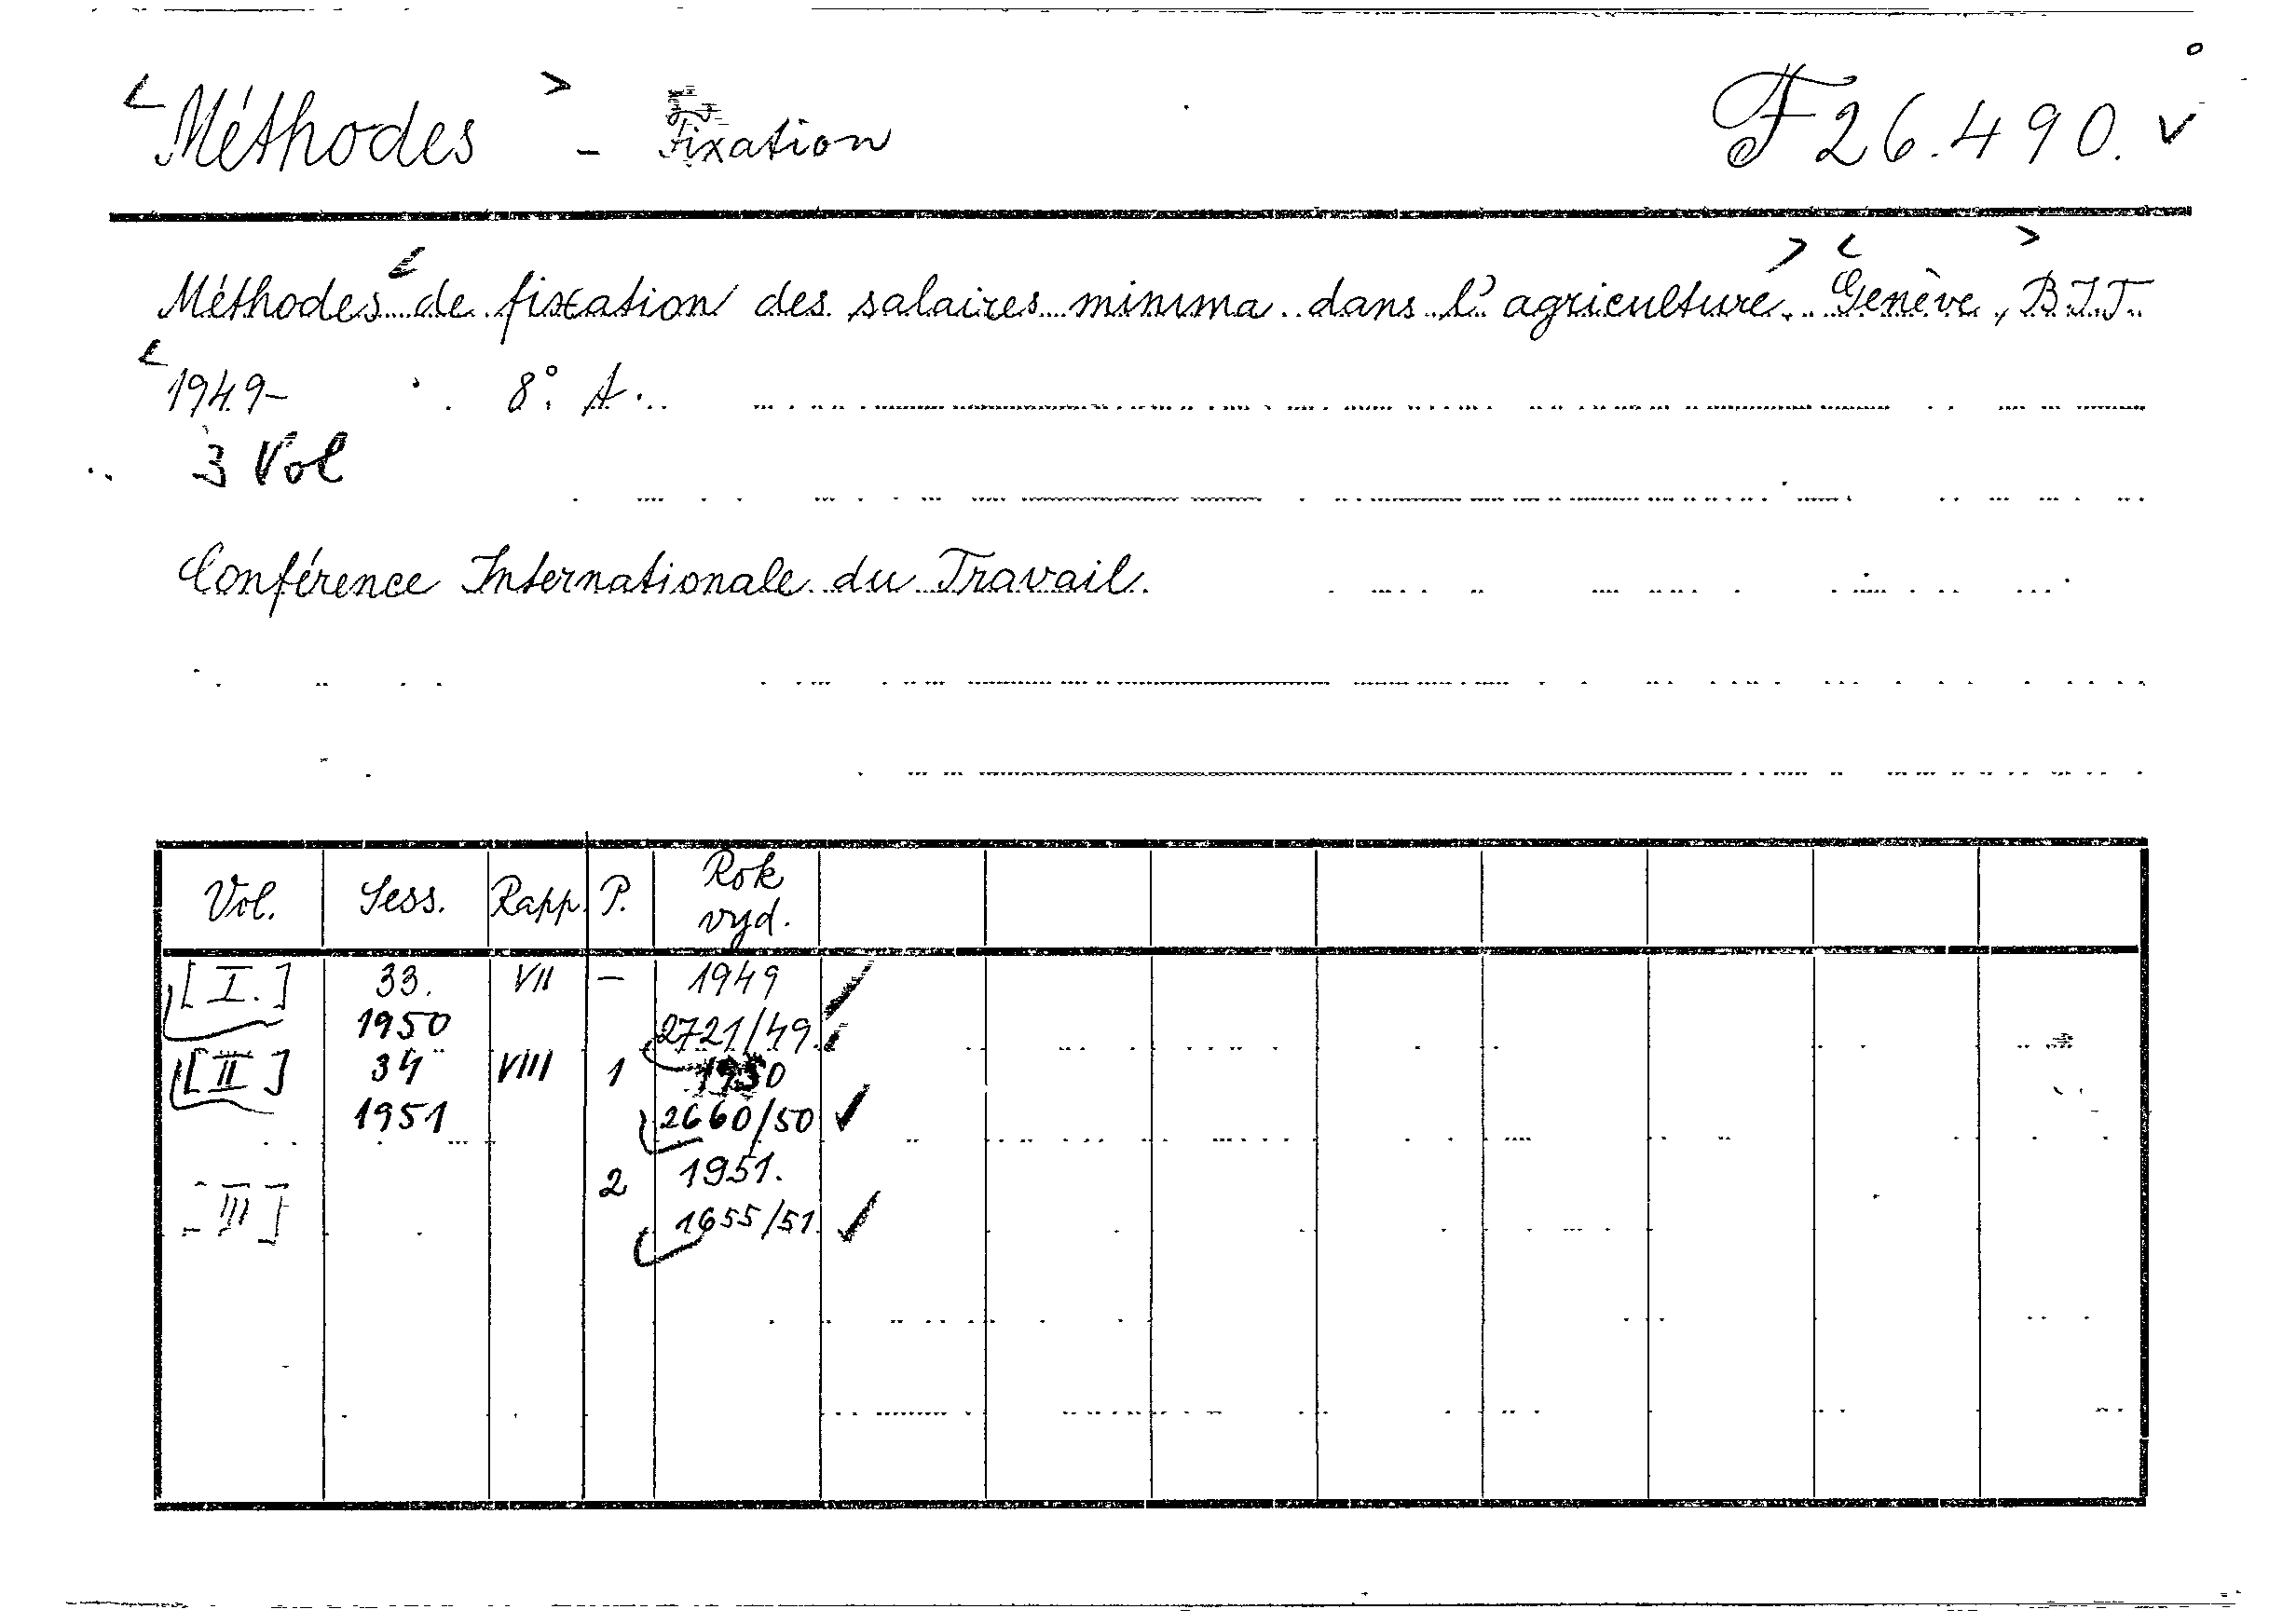 Méthodes - Fixation F 26.490.
Méthodes de fixation des salaires minima dans l'agriculture. Genève, B.I.T.
1949- 8°. A.
3 Vol
Conférence Internationale du Travail.
Vol. Sess. Rapp. P. Rok vyd.
[I.] 33. VII - 1949
1950 2721/49.
[II] 34 VIII 1 1950
1951 2660/50
2 1951.
III] 1655/51